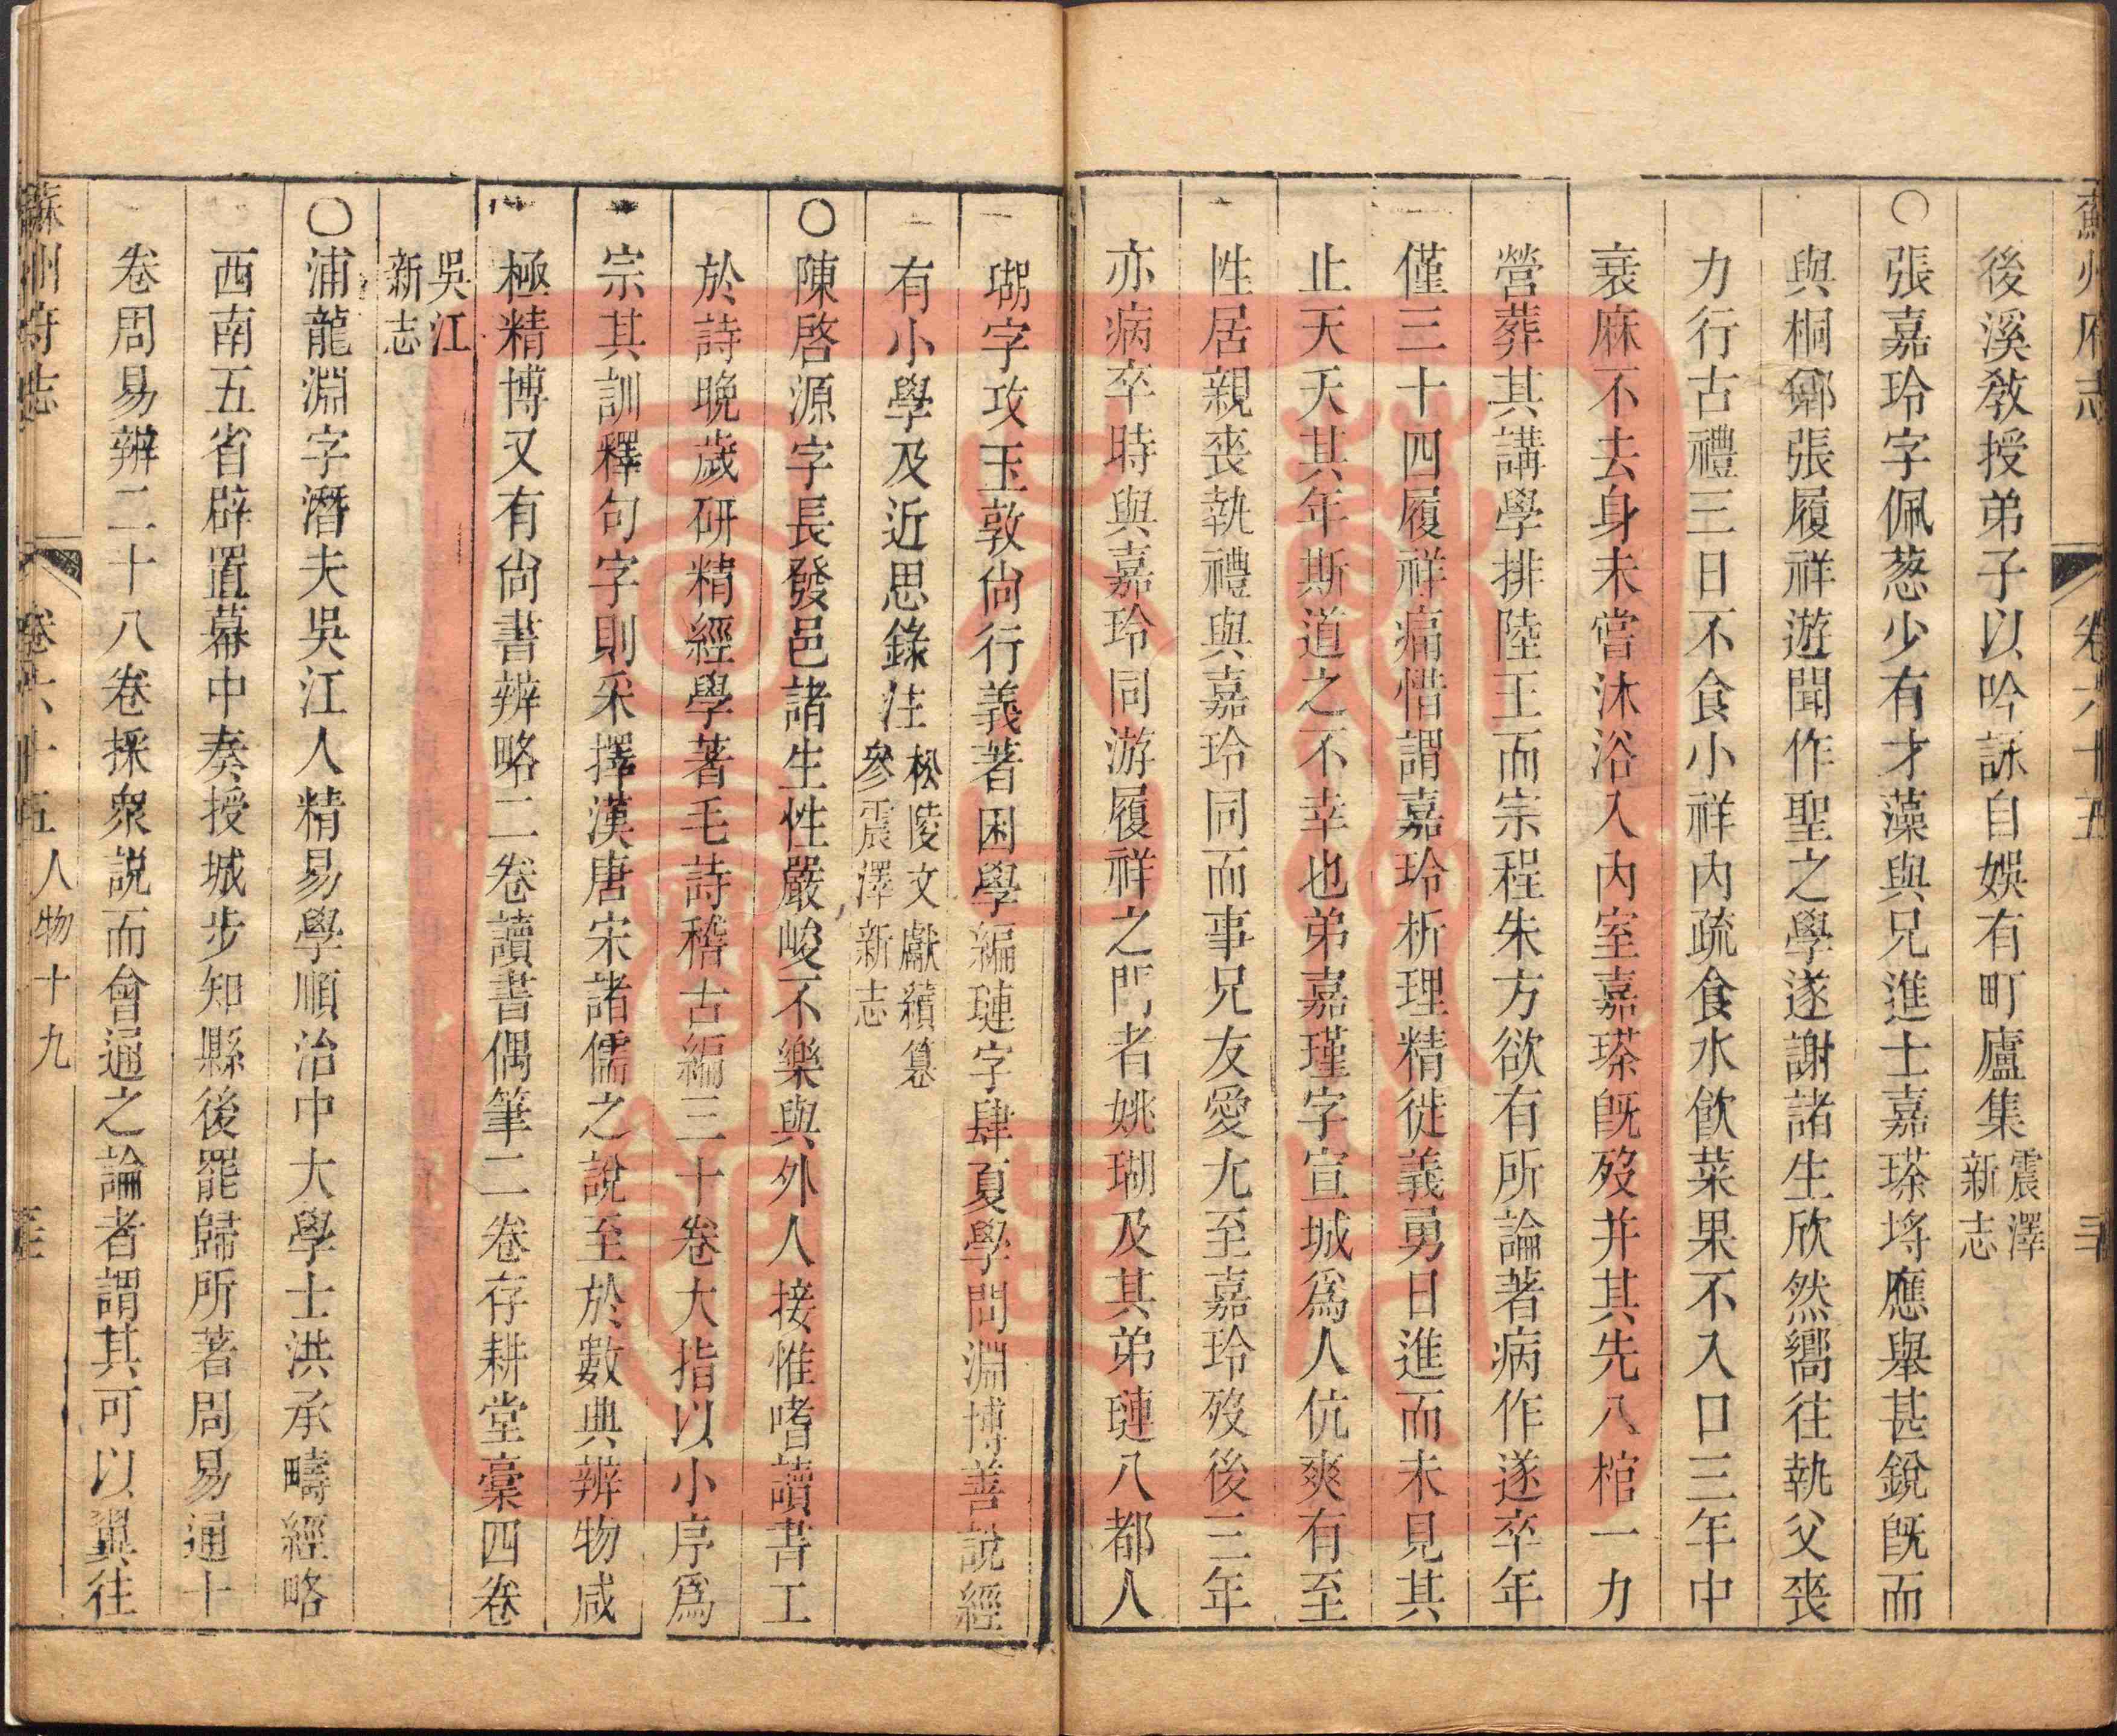 蘇州府志 卷六十五
後溪敎授弟子以吟詠自娛有町廬集震澤新志
○張嘉玲字佩葱少有才藻與兄進士嘉瑹將應舉甚銳旣而
與桐鄉張履祥遊聞作聖之學遂謝諸生欣然嚮往執父喪
力行古禮三日不食小祥內疏食水飮菜果不入口三年中
衰麻不去身未嘗沐浴入內室嘉瑹旣歿并其先八棺一力
營葬其講學排陸王而宗程朱方欲有所論著病作遂卒年
僅三十四履祥痛惜謂嘉玲析理精徙義勇日進而未見其
止天夭其年斯道之不幸也弟嘉瑾字宣城爲人伉爽有至
性居親喪執禮與嘉玲同而事兄友愛尤至嘉玲歿後三年
亦病卒時與嘉玲同游履祥之門者姚瑚及其弟璉八都人
瑚字攻玉敦尙行義著困學編璉字肆夏學問淵博善說經
有小學及近思錄注松陵文獻續纂參震澤新志
○陳啓源字長發邑諸生性嚴峻不樂與外人接惟嗜讀書工
於詩晚歲硏精經學著毛詩稽古編三十卷大指以小序爲
宗其訓釋句字則采擇漢唐宋諸儒之說至於數典辨物咸
極精博又有尙書辨略二卷讀書偶筆二卷存耕堂稾四卷
吳江新志
○浦龍淵字潛夫吳江人精易學順治中大學士洪承疇經略
西南五省辟置幕中奏授城步知縣後罷歸所著周易通十
卷周易辨二十八卷採衆說而會通之論者謂其可以翼往
蘇州府志 卷六十五 人物十九